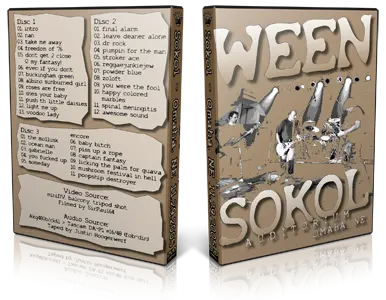 Disc 1
01 intro
02 nan
03 take me away
04 freedom of 76
05 dont get 2 close
(2 my fantasy)
06 even if you dont
07 buckingham green
08 albino sunburned girl
09 roses are free
10 shes your baby
11 push th little daisies
12 light me up
13 voodoo lady
Disc 2
01 final alarm
02 leave deaner alone
03 dr rock
04 pumpin for the man
05 stroker ace
06 reggaejunkiejew
07 powder blue
08 zoloft
09 you were the fool
10 happy colored
marbles
11 spinal meningitis
12 awesome sound
Disc 3
01 the mollusk
02 ocean man
03 gabrielle
04 you fucked up
05 someday
encore
06 baby bitch
07 piss up a rope
08 captain fantasy
09 licking the palm for guava
10 mushroom festival in hell
11 poopship destroyer
Video Source:
miniDV balcony tripod shot
Filmed by
Audio Source:
Tascam DA-P1
Taped by Justin Hoogenwerf
Sokol - Omaha, NE
WEEN
SOKOL
AUDITORIUM
OMAHA, NE